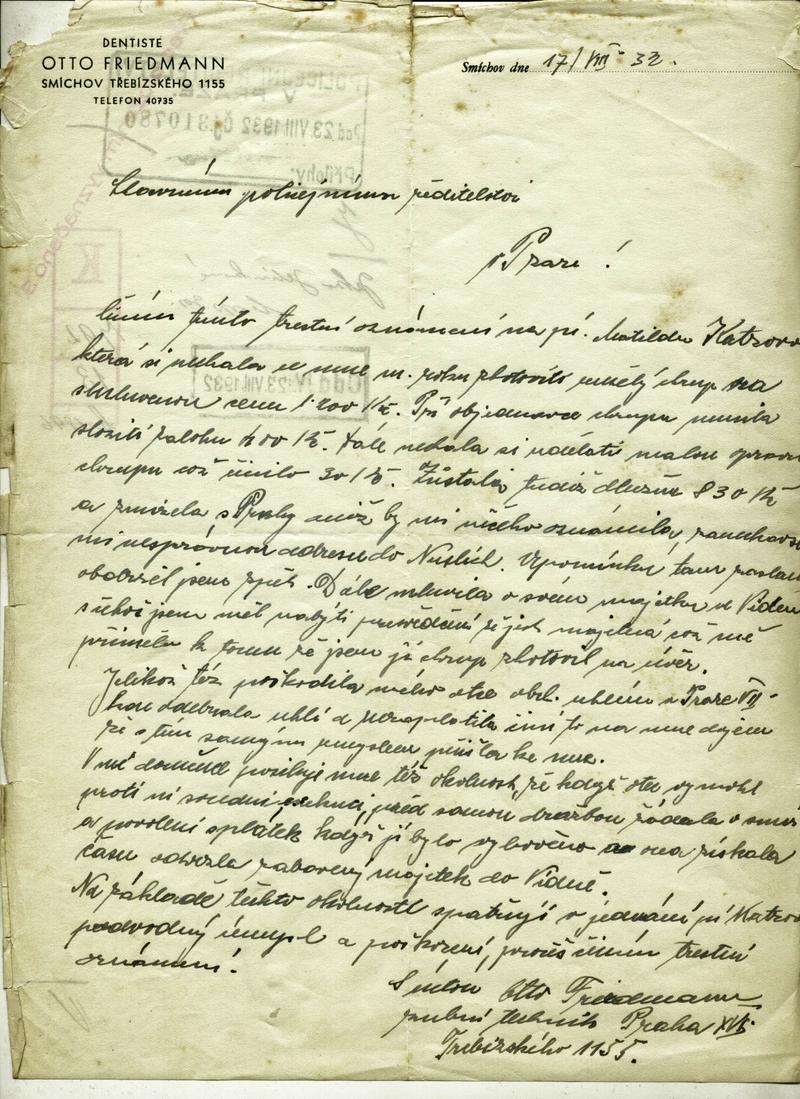 DENTISTE
OTTO FRIEDMANN
SMÍCHOV TŘEBÍZSKÉHO 1155
TELEFON 40735
Smíchov dne 17/VIII 32.
Slavnému policejnímu ředitelství
v Praze!
činím tímto trestní oznámení na pí. Matildu Katzovo
která si nechala u mne m. roku zhotoviti umělý chrup za
smluvenou cenu 1200 Kč. Při objednávce chrupu
složiti zálohu 400 Kč. Dále nechala si udělati malou opravu
chrupu což činilo 30 Kč. Zůstala tudíž dlužna 830 Kč
a zmizela s Prahy aniž by mi něčeho oznámila, zanechavše
mi nesprávnou adresu do Nuslích. Upomínku tam poslanou
obdržel jsem zpět. Dále mluvila o svém majetku ve Vídni
z čehož jsem měl nabýti přesvědčení že jest majetná což mě
přimělo k tomu že jsem jí chrup zhotovil na úvěr.
Jelikož též poškodila mého otce obch. uhlím v Praze VII
kde odebrala uhlí a nezaplatila činí to na mne dojem
že s tím samým úmyslem přišla ke mne.
V mé domněnce posiluje mne též okolnost, že když otec vymohl
proti ní soudní exekuci, před samou dražbou žádala o smír
a povolení splátek když jí bylo vyhověno a ona získala
času odvezla zabavený majetek do Vídně.
Na základě těchto okolností spatřuji v jednání pí Katzovo
podvodný úmysl a poškození, pročež činím trestní
oznámení!
S úctou Otto Friedmann
zubní technik Praha XVI.
Třebízského 1155.